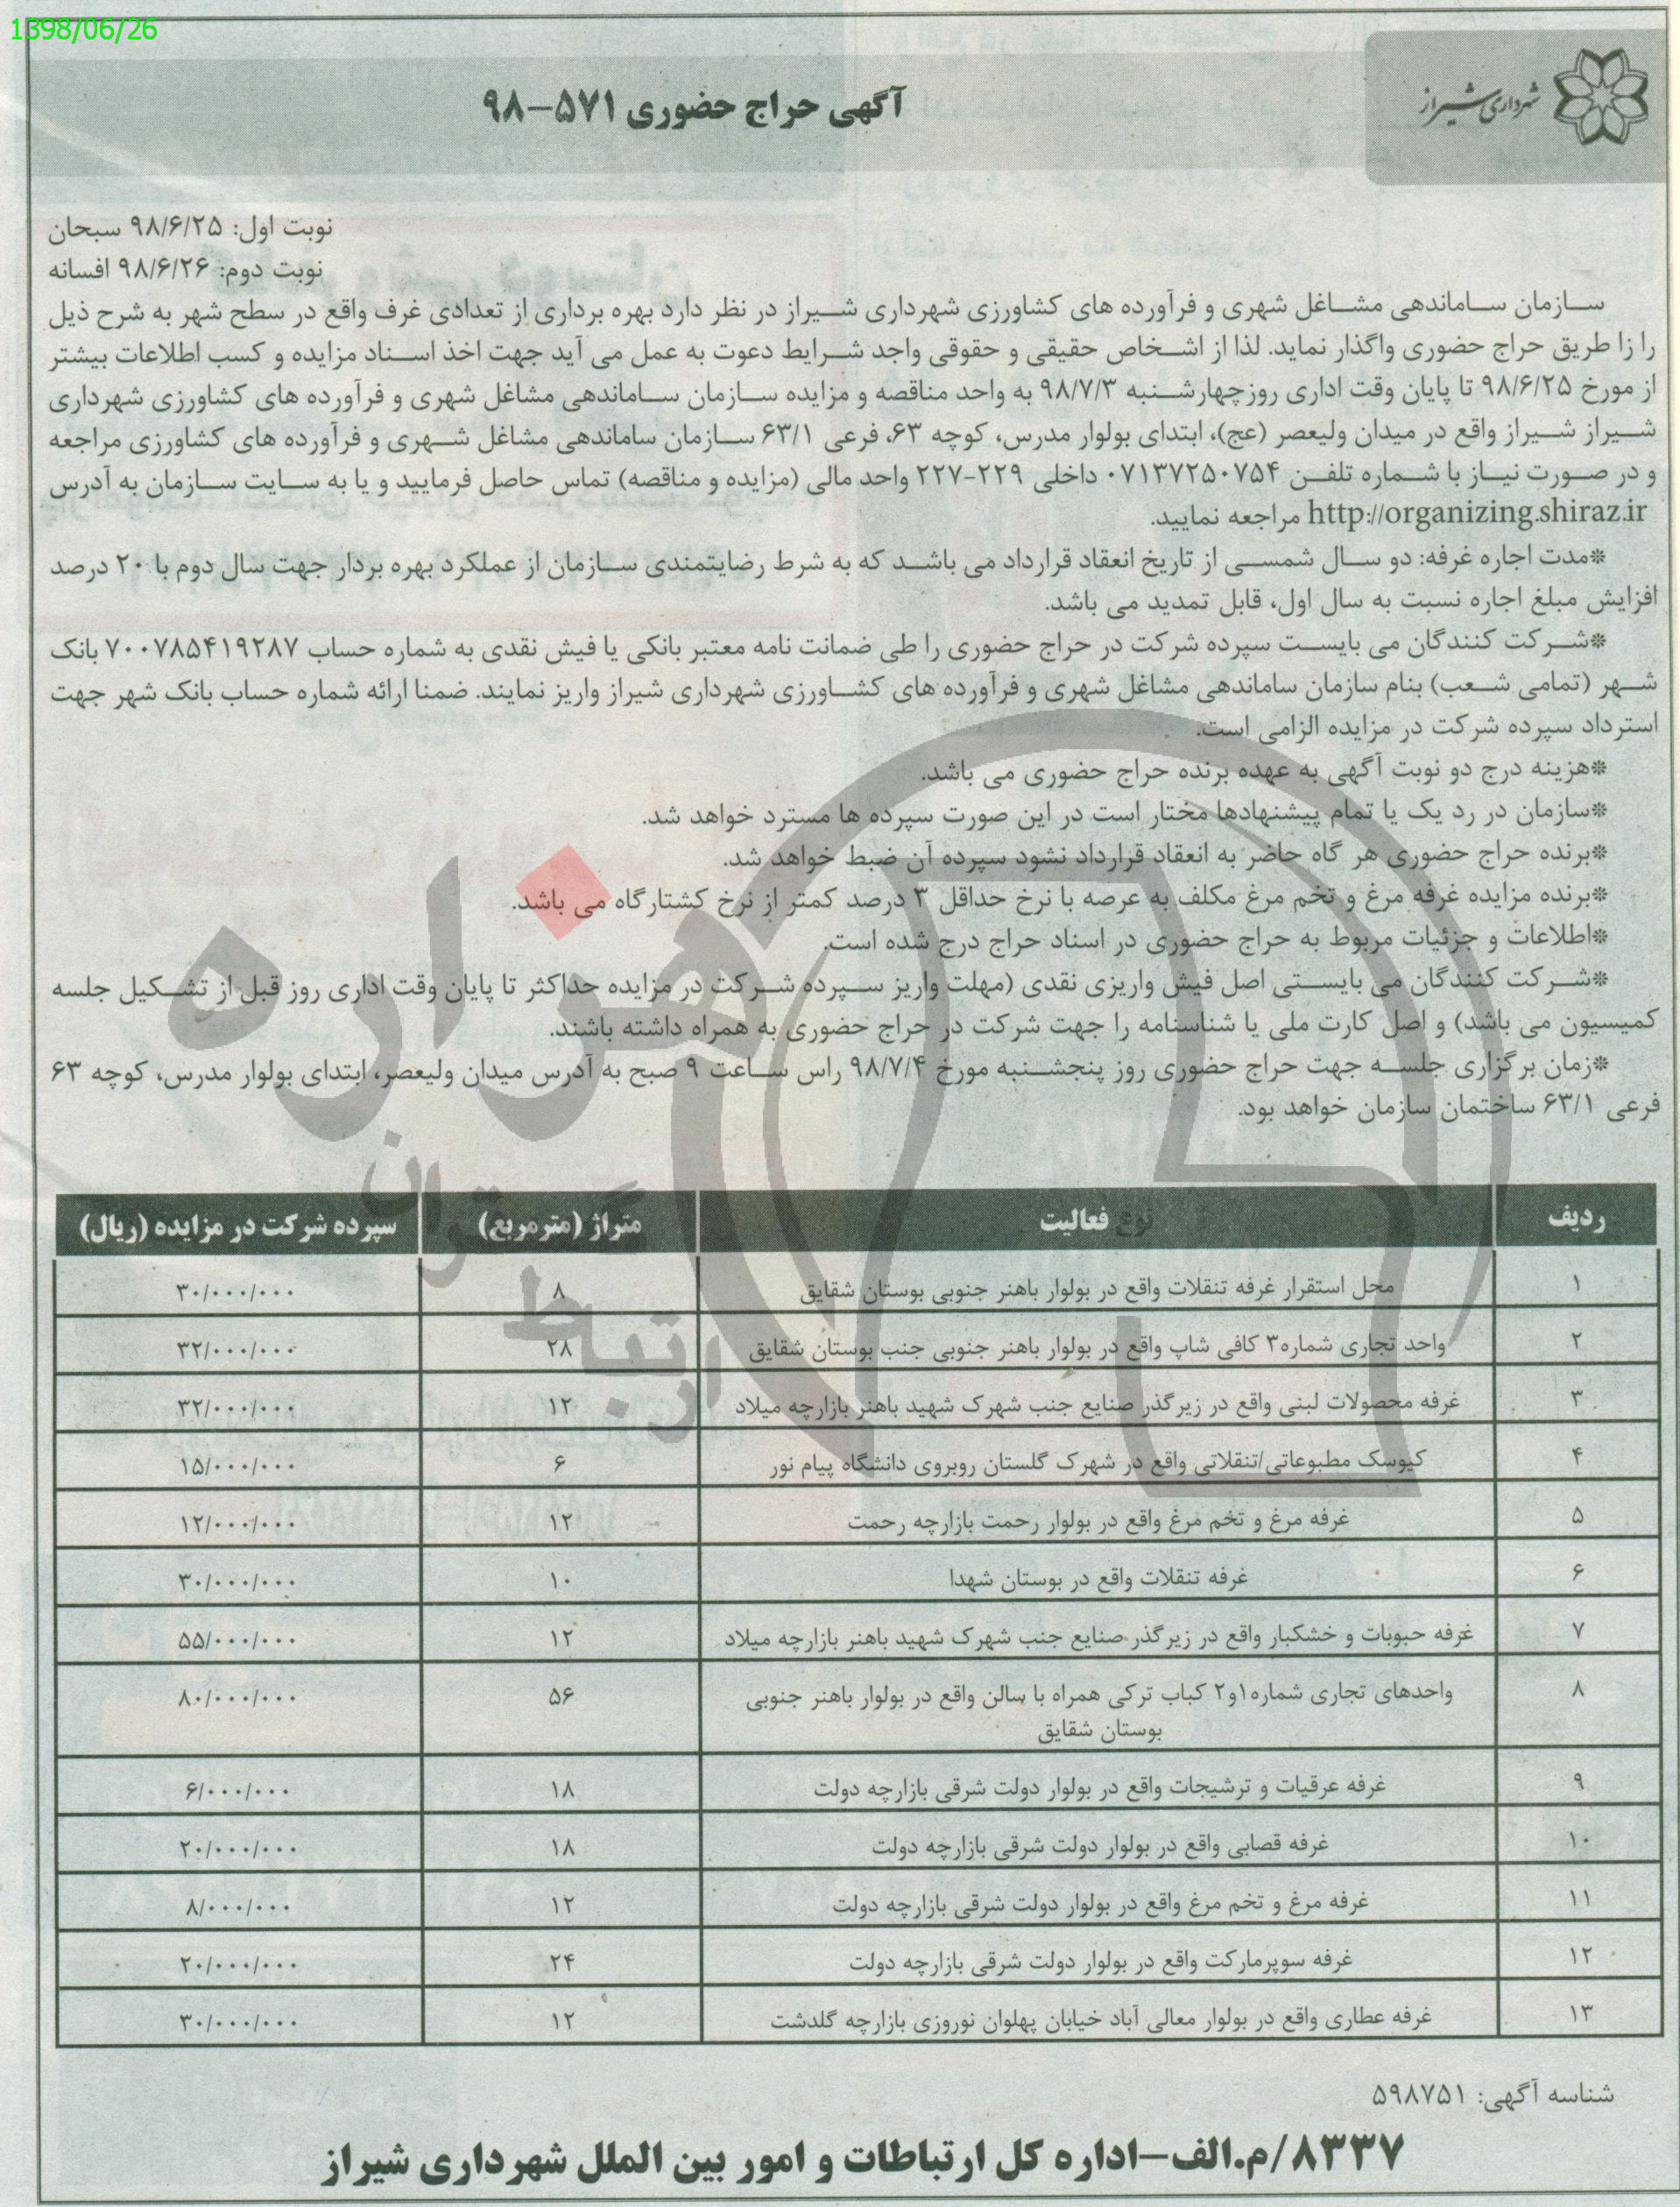 1398/06/26
شهرداری شیراز
آگهی حراج حضوری ۵۷۱-۹۸
نوبت اول: ۹۸/۶/۲۵ سبحان
نوبت دوم: ۹۸/۶/۲۶ افسانه
سازمان ساماندهی مشاغل شهری و فرآورده های کشاورزی شهرداری شیراز در نظر دارد بهره برداری از تعدادی غرف واقع در سطح شهر به شرح ذیل
را زا طریق حراج حضوری واگذار نماید. لذا از اشخاص حقیقی و حقوقی واجد شرایط دعوت به عمل می آید جهت اخذ اسناد مزایده و کسب اطلاعات بیشتر
از مورخ ۹۸/۶/۲۵ تا پایان وقت اداری روزچهارشنبه ۹۸/۷/۳ به واحد مناقصه و مزایده سازمان ساماندهی مشاغل شهری و فرآورده های کشاورزی شهرداری
شیراز شیراز واقع در میدان ولیعصر (عج)، ابتدای بولوار مدرس، کوچه ۶۳، فرعی ۶۳/۱ سازمان ساماندهی مشاغل شهری و فرآورده های کشاورزی مراجعه
و در صورت نیاز با شماره تلفن ۰۷۱۳۷۲۵۰۷۵۴ داخلی ۲۲۹-۲۲۷ واحد مالی (مزایده و مناقصه) تماس حاصل فرمایید و یا به سایت سازمان به آدرس
http://organizing.shiraz.ir مراجعه نمایید.
*مدت اجاره غرفه: دو سال شمسی از تاریخ انعقاد قرارداد می باشد که به شرط رضایتمندی سازمان از عملکرد بهره بردار جهت سال دوم با ۲۰ درصد
افزایش مبلغ اجاره نسبت به سال اول، قابل تمدید می باشد.
*شرکت کنندگان می بایست سپرده شرکت در حراج حضوری را طی ضمانت نامه معتبر بانکی یا فیش نقدی به شماره حساب ۷۰۰۷۸۵۴۱۹۲۸۷ بانک
شهر (تمامی شعب) بنام سازمان ساماندهی مشاغل شهری و فرآورده های کشاورزی شهرداری شیراز واریز نمایند. ضمنا ارائه شماره حساب بانک شهر جهت
استرداد سپرده شرکت در مزایده الزامی است.
*هزینه درج دو نوبت آگهی به عهده برنده حراج حضوری می باشد.
*سازمان در رد یک یا تمام پیشنهادها مختار است در این صورت سپرده ها مسترد خواهد شد.
*برنده حراج حضوری هر گاه حاضر به انعقاد قرارداد نشود سپرده آن ضبط خواهد شد.
*برنده مزایده غرفه مرغ و تخم مرغ مکلف به عرصه با نرخ حداقل ۳ درصد کمتر از نرخ کشتارگاه می باشد.
*اطلاعات و جزئیات مربوط به حراج حضوری در اسناد حراج درج شده است.
*شرکت کنندگان می بایستی اصل فیش واریزی نقدی (مهلت واریز سپرده شرکت در مزایده حداکثر تا پایان وقت اداری روز قبل از تشکیل جلسه
کمیسیون می باشد) و اصل کارت ملی یا شناسنامه را جهت شرکت در حراج حضوری به همراه داشته باشند.
*زمان برگزاری جلسه جهت حراج حضوری روز پنجشنبه مورخ ۹۸/۷/۴ راس ساعت ۹ صبح به آدرس میدان ولیعصر، ابتدای بولوار مدرس، کوچه ۶۳
فرعی ۶۳/۱ ساختمان سازمان خواهد بود.
هزاره
گستران
ارتباط
ردیف نوع فعالیت متراژ (مترمربع) سپرده شرکت در مزایده (ریال)
۱ محل استقرار غرفه تنقلات واقع در بولوار باهنر جنوبی بوستان شقایق ۸ ۳۰/۰۰۰/۰۰۰
۲ واحد تجاری شماره۳ کافی شاپ واقع در بولوار باهنر جنوبی جنب بوستان شقایق ۲۸ ۳۲/۰۰۰/۰۰۰
۳ غرفه محصولات لبنی واقع در زیرگذر صنایع جنب شهرک شهید باهنر بازارچه میلاد ۱۲ ۳۲/۰۰۰/۰۰۰
۴ کیوسک مطبوعاتی/تنقلاتی واقع در شهرک گلستان روبروی دانشگاه پیام نور ۶ ۱۵/۰۰۰/۰۰۰
۵ غرفه مرغ و تخم مرغ واقع در بولوار رحمت بازارچه رحمت ۱۲ ۱۲/۰۰۰/۰۰۰
۶ غرفه تنقلات واقع در بوستان شهدا ۱۰ ۳۰/۰۰۰/۰۰۰
۷ غرفه حبوبات و خشکبار واقع در زیرگذر صنایع جنب شهرک شهید باهنر بازارچه میلاد ۱۲ ۵۵/۰۰۰/۰۰۰
۸ واحدهای تجاری شماره۱و۲ کباب ترکی همراه با سالن واقع در بولوار باهنر جنوبی ۵۶ ۸۰/۰۰۰/۰۰۰
بوستان شقایق
۹ غرفه عرقیات و ترشیجات واقع در بولوار دولت شرقی بازارچه دولت ۱۸ ۶/۰۰۰/۰۰۰
۱۰ غرفه قصابی واقع در بولوار دولت شرقی بازارچه دولت ۱۸ ۲۰/۰۰۰/۰۰۰
۱۱ غرفه مرغ و تخم مرغ واقع در بولوار دولت شرقی بازارچه دولت ۱۲ ۸/۰۰۰/۰۰۰
۱۲ غرفه سوپرمارکت واقع در بولوار دولت شرقی بازارچه دولت ۲۴ ۲۰/۰۰۰/۰۰۰
۱۳ غرفه عطاری واقع در بولوار معالی آباد خیابان پهلوان نوروزی بازارچه گلدشت ۱۲ ۳۰/۰۰۰/۰۰۰
شناسه آگهی: ۵۹۸۷۵۱
۸۳۳۷/م.الف-اداره کل ارتباطات و امور بین الملل شهرداری شیراز